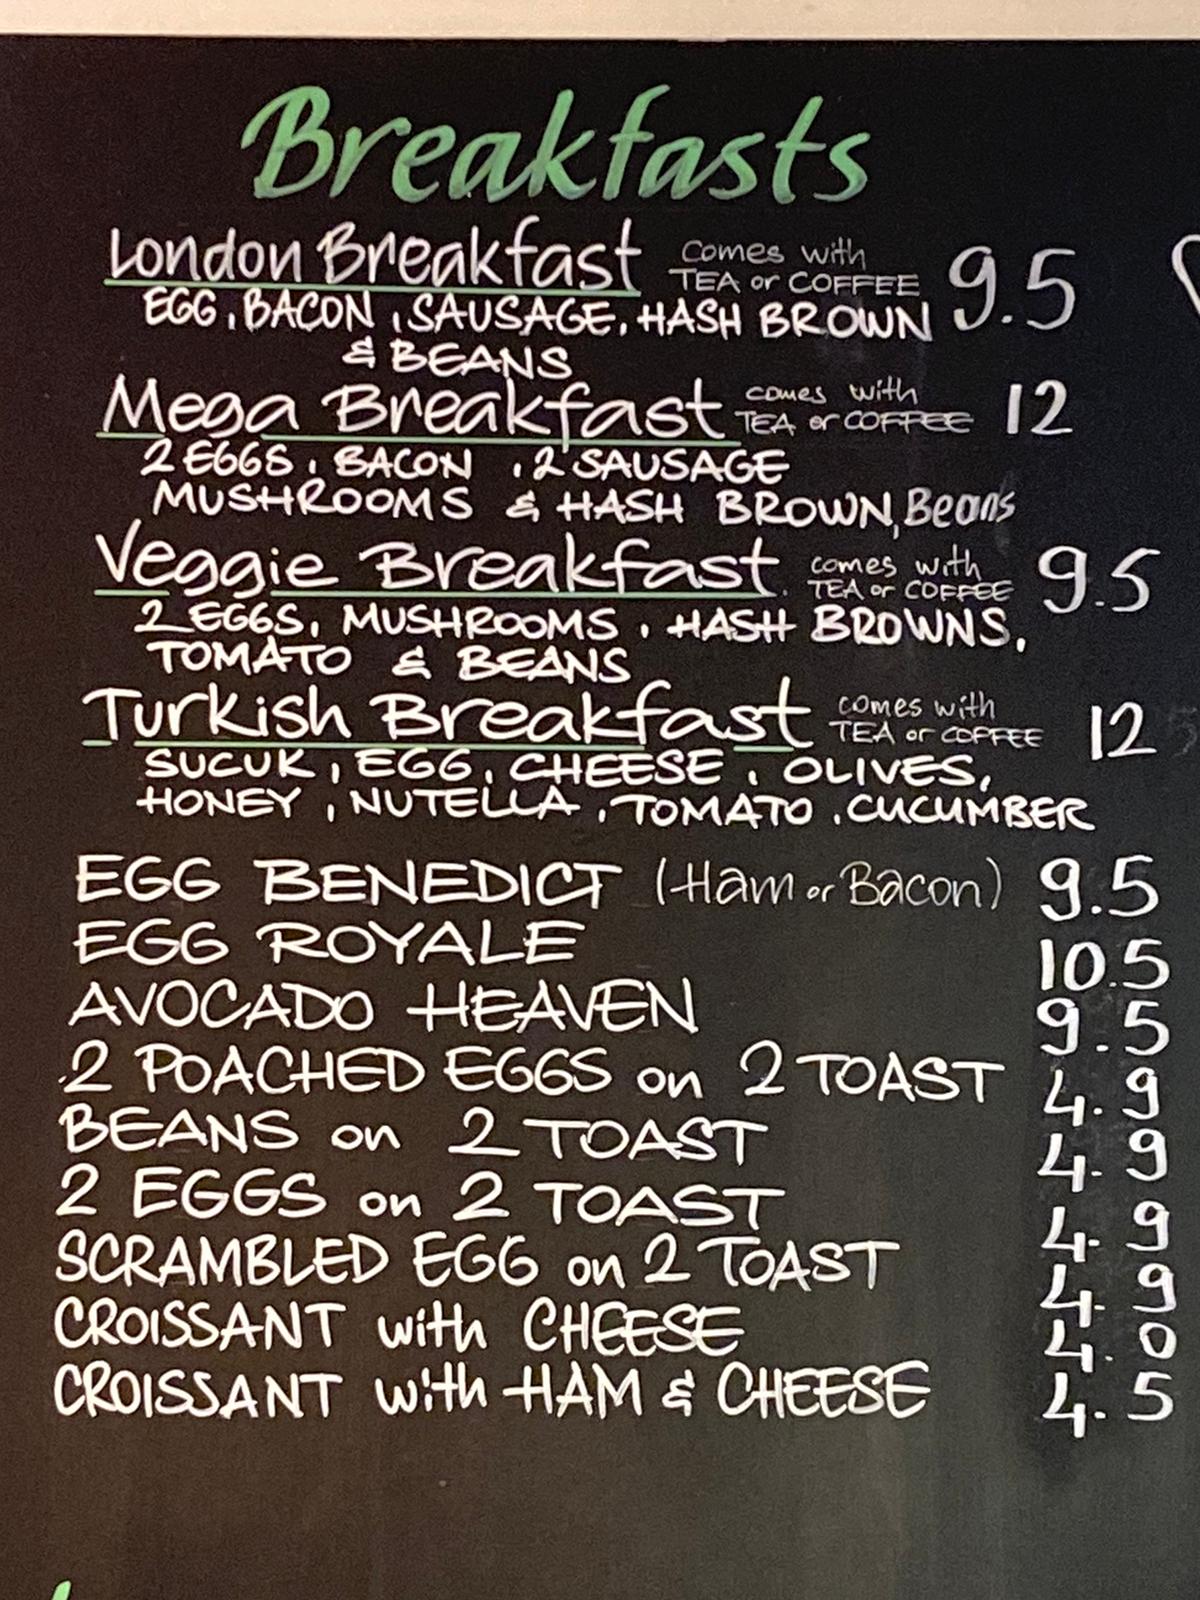 Breakfasts
London Breakfast comes with TEA or COFFEE 9.5
EGG, BACON, SAUSAGE, HASH BROWN
& BEANS
Mega Breakfast comes with TEA or COFFEE 12
2 EGGS, BACON, 2 SAUSAGE
MUSHROOMS & HASH BROWN, Beans
Veggie Breakfast comes with TEA or COFFEE 9.5
2 EGGS, MUSHROOMS, HASH BROWNS,
TOMATO & BEANS
Turkish Breakfast comes with TEA or COFFEE 12
SUCUK, EGG, CHEESE, OLIVES,
HONEY, NUTELLA, TOMATO, CUCUMBER
EGG BENEDICT (Ham or Bacon) 9.5
EGG ROYALE 10.5
AVOCADO HEAVEN 9.5
2 POACHED EGGS on 2 TOAST 4.9
BEANS on 2 TOAST 4.9
2 EGGS on 2 TOAST 4.9
SCRAMBLED EGG on 2 TOAST 4.9
CROISSANT with CHEESE 4.0
CROISSANT with HAM & CHEESE 4.5